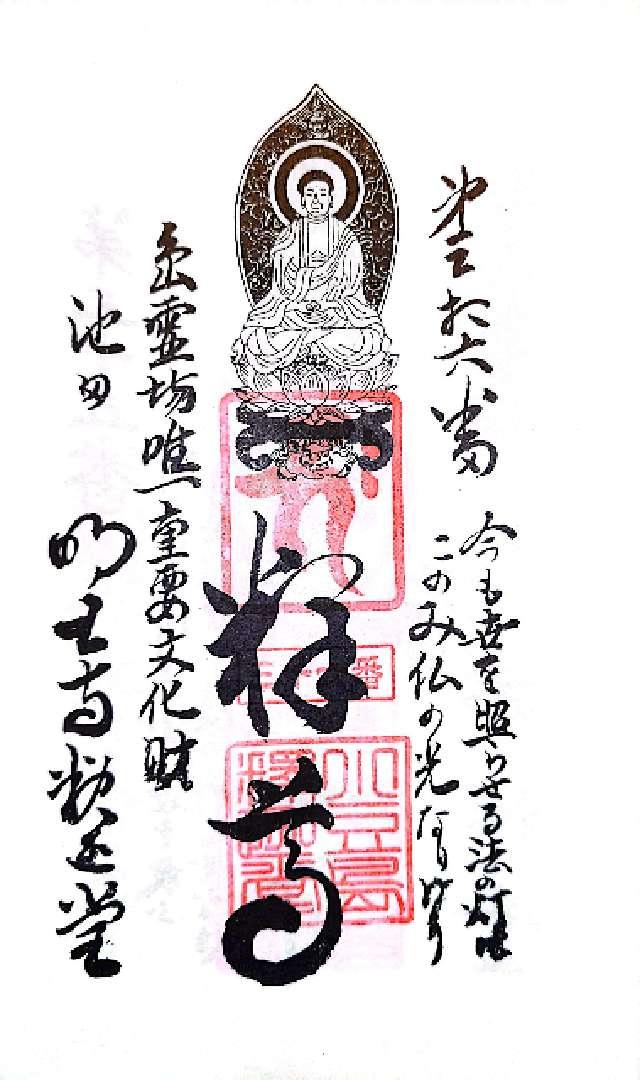 第三十六番
今も世を照らせる法の灯は
このみ仏の光なりけり
釋尊
三十六番
小豆島
島霊場唯一重要文化財
池田
明王寺釈迦堂